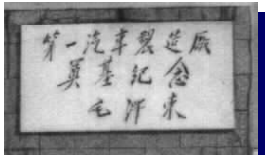 第一汽车製造厰
奠基纪念
毛泽东